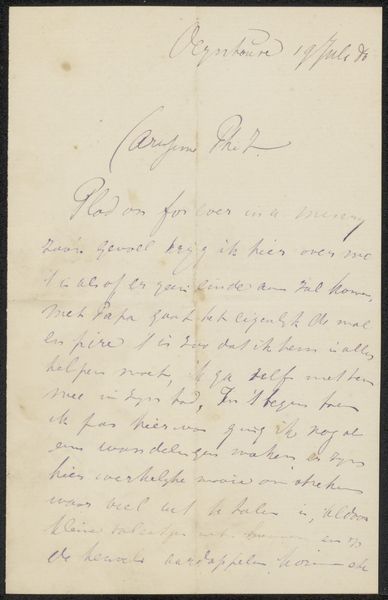 Oeynhausen 19 Juli 80
Carissime Phil.
Plod on for ever in a misery
zoo'n gevoel krijg ik hier over me
't is alsof er geen einde aan zal komen,
Met Papa gaat het eigenlijk de mal
en pire 't is zoo dat ik hem in alles
helpen moet, ik ga zelf met hem
mee in zijn bad, In 't begin toen
ik pas hier was ging ik nog al
eens wandelingen maken er zijn
hier werkelijk mooie omstreken
waar veel uit te halen is, al door
kleine en op
de heuvels aardappelen, koren